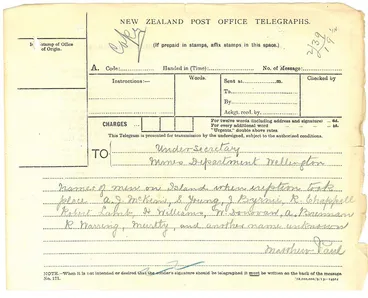 NEW ZEALAND POST OFFICE TELEGRAPHS.
Copy
(If prepaid in stamps, affix stamps in this space.)
Stamp of Office
of Origin.
A. Code: Handed in (Time): No. of Message:
Instructions:— Words. Sent at m. Checked by
To
By
Ackgt. recd. by
CHARGES For twelve words (including address and signature)
For every additional word
"Urgents," double above rates
This Telegram is presented for transmission by the undersigned, subject to the authorised conditions.
TO Under Secretary
Mines Department Wellington
Names of men on Island when eruption took
place A. J. McKim, S Young, J Byrne, R. Chappell
Robert Lamb, H Williams, W Donovan, A Brennan
R Waring, and another name unknown
Matthew Paul
NOTE.—When it is not intended or desired that the sender's signature should be telegraphed it must be written on the back of the message
No. 171.